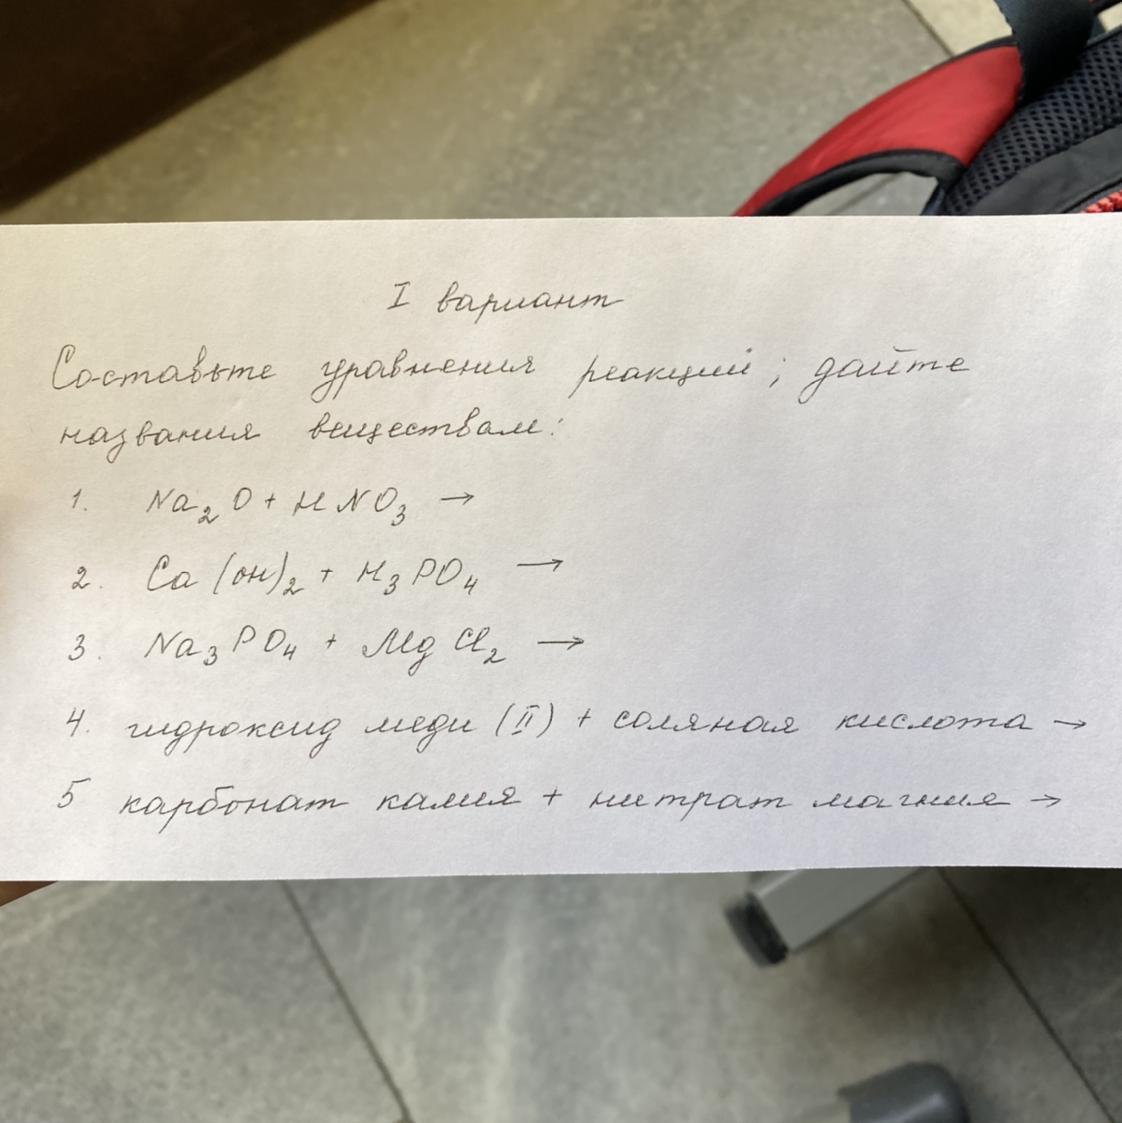 I вариант
Составьте уравнения реакций; дайте
названия веществам:
1. Na₂O + HNO₃ →
2. Ca(OH)₂ + H₃PO₄ →
3. Na₃PO₄ + MgCl₂ →
4. гидроксид меди (II) + соляная кислота →
5 карбонат калия + нитрат магния →